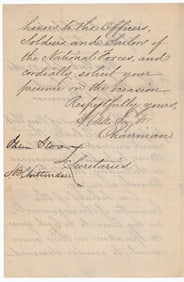 honors to the Officers,
Soldiers and Sailors of
the National Forces, and
cordially solicit your
presence on the occasion.
Respectfully yours,
Chairman
Secretaries